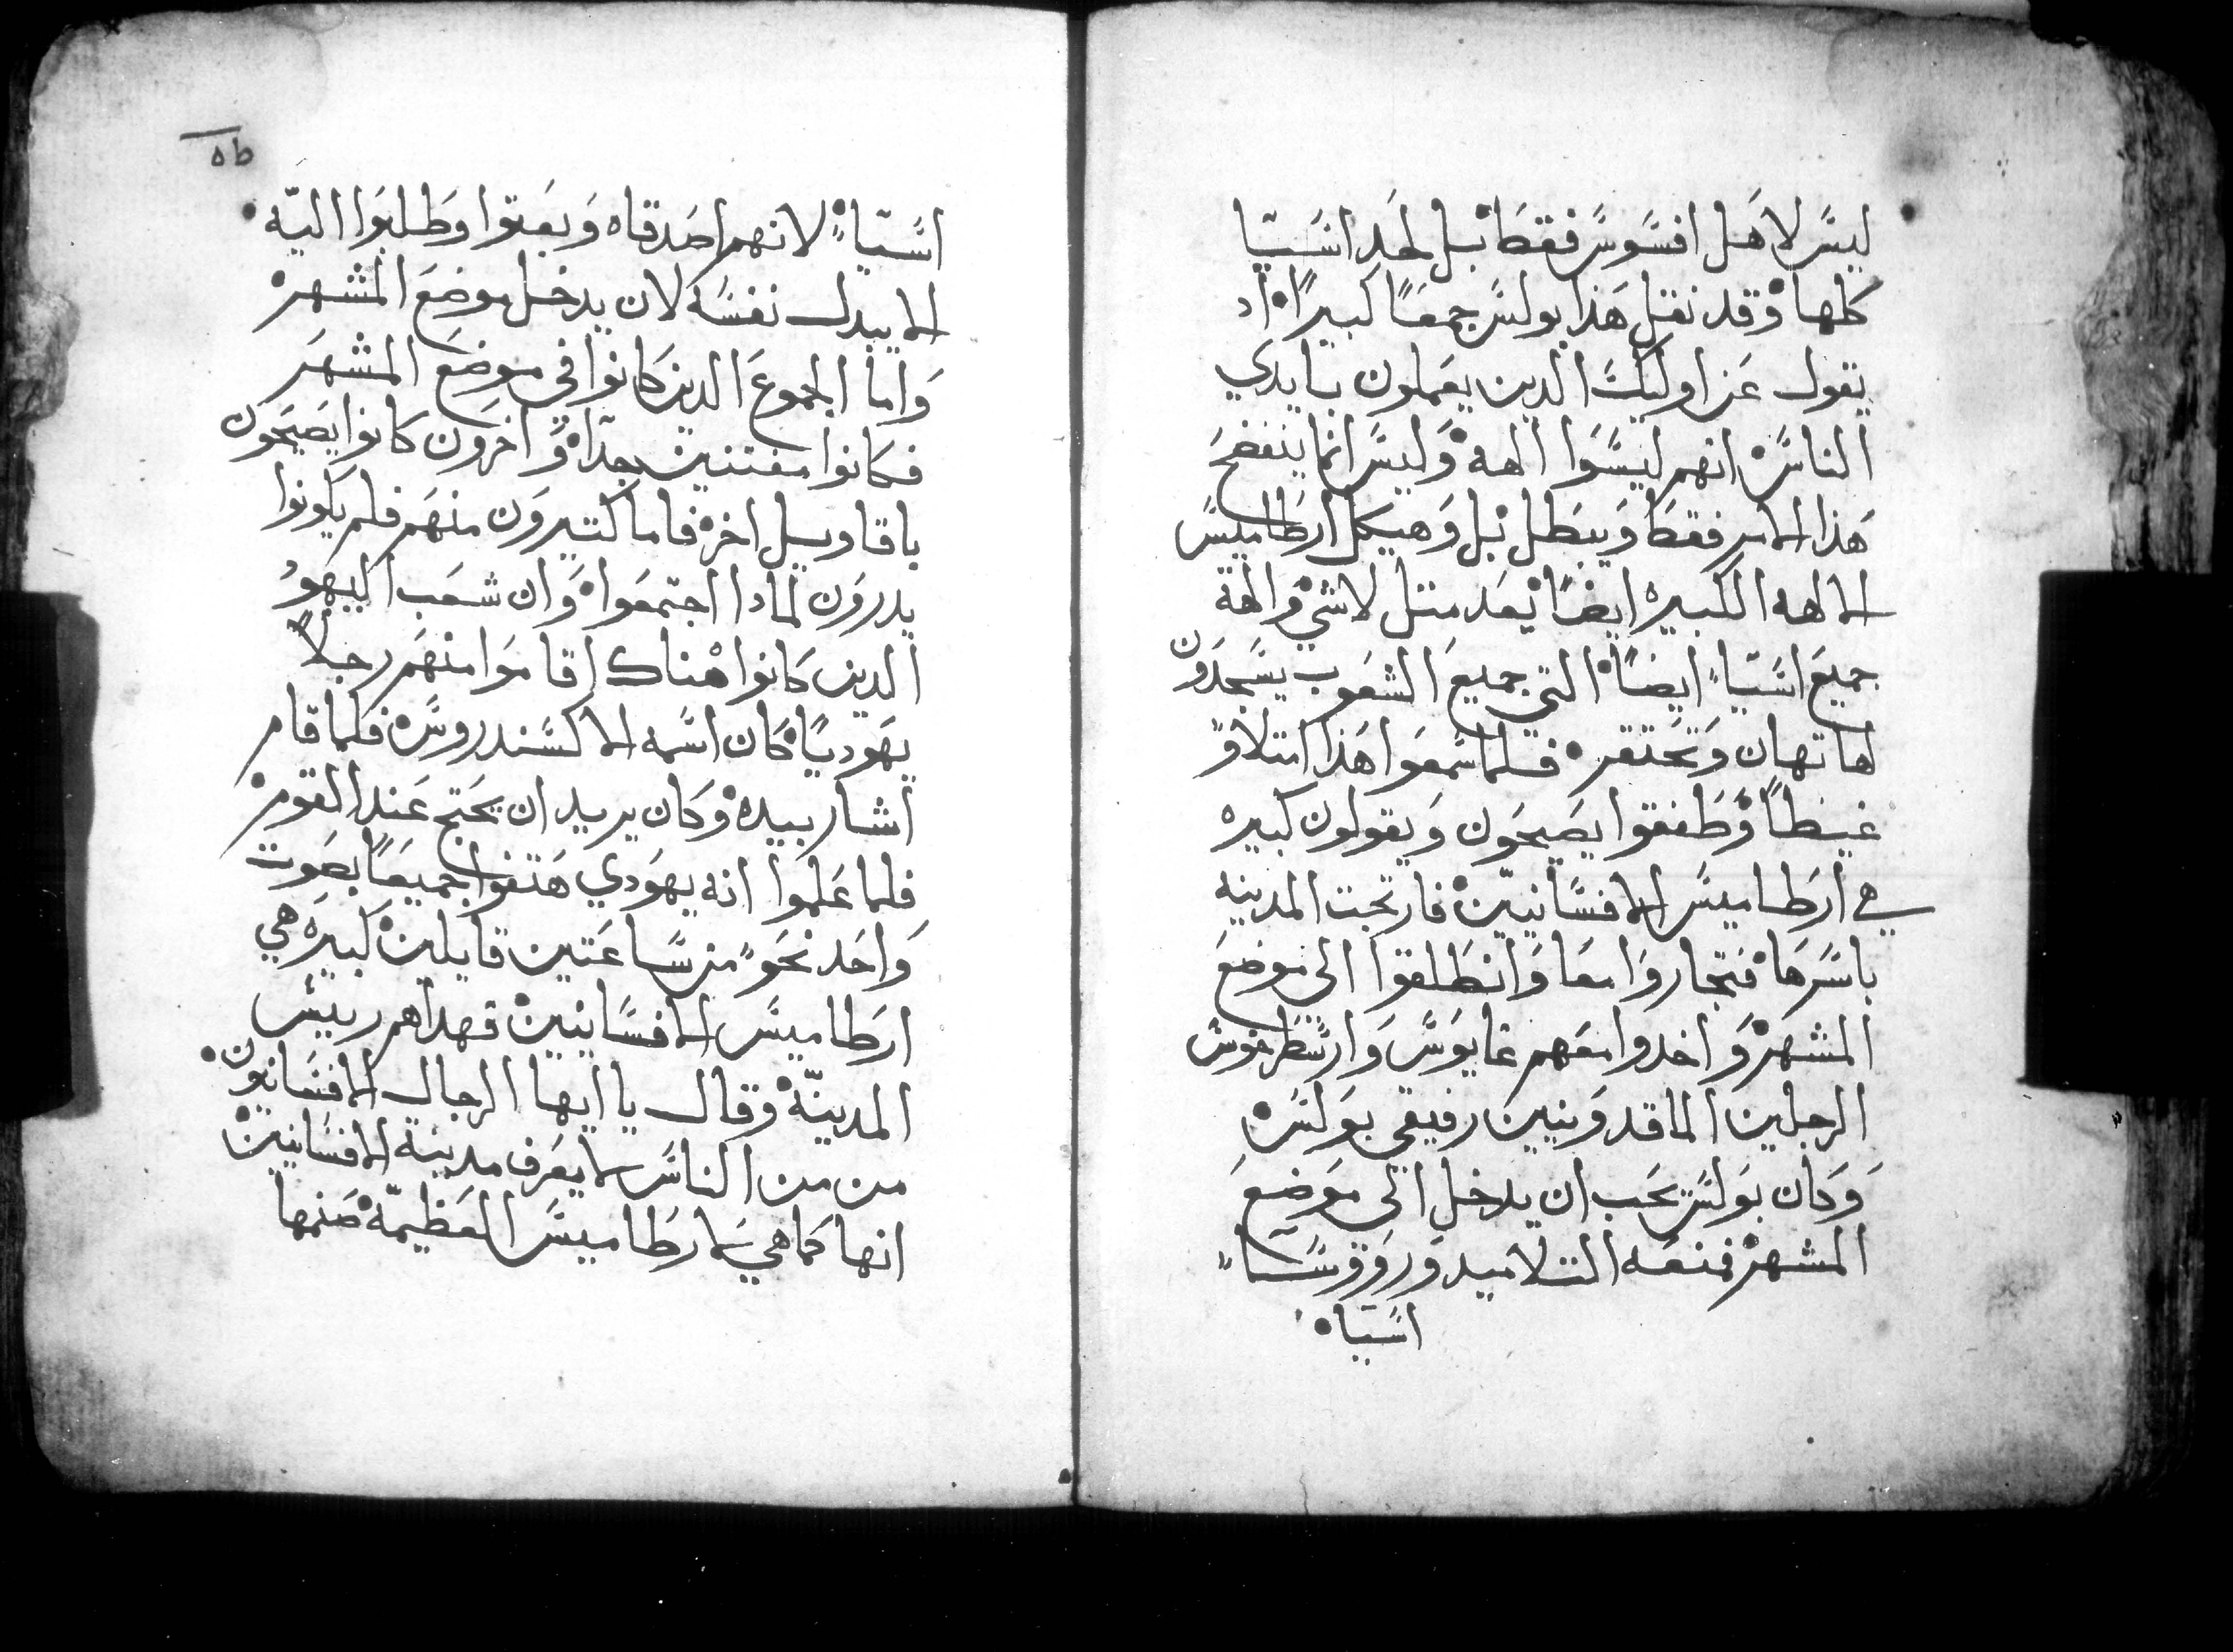 ليس لاهل افسوس فقط بل لحد اسيا
كلها وقد نقل هذا بولس جمعًا كبيرًا اد
يقول عن اوليك الدين يعملون بايدي
الناس انهم ليسوا الهه وليس انما ينفضح
هذا الامر فقط ويبطل بل وهيكل ارطاميس
الالهه الكبيره ايضًا يعد متل لاشي والهة
جميع اسيا ايضًا التي جميع الشعوب يسجدون
لها تهان وتحتقر فلما سمعوا هذا امتلاو
غيظًا وطفقوا يصيحون ويقولون كبيره
هي ارطاميس الافسانيين فارتجت المدينه
باسرها فتجاروا معا وانطلقوا الي موضع
المشهر واخدوا معهم غايوس وارسطرخوس
الرجلين الماقدونيين رفيقي بولس
وكان بولس يحب ان يدخل الي موضع
المشهر فمنعه التلاميد وروسا
اسيا
٥٦
اسيا لانهم اصدقاه وبعتوا وطلبوا اليه
الا يبدل نفسه لان يدخل موضع المشهر
واما الجموع الدين كانوا في موضع المشهر
فكانوا مفتنين جدا واخرون كانوا يصيحون
باقاويل اخر فاما كتيرون منهم فلم يكونوا
يدرون لمادا اجتمعوا وان شعب اليهود
الدين كانوا هناك اقاموا منهم رجلًا
يهوديًا كان اسمه الاكسندروس فلما قام
اشار بيده وكان يريد ان يحتج عند القوم
فلما علموا انه يهودي هتفوا جميعًا بصوت
واحد نحو من ساعتين قايلين كبيره هي
ارطاميس الافسانيين فهداهم رييس
المدينة وقال يا ايها الرجال الافسانيون
من من الناس لا يعرف مدينة الافسانيين
انها كما هي لارطاميس العظيمة صنمها